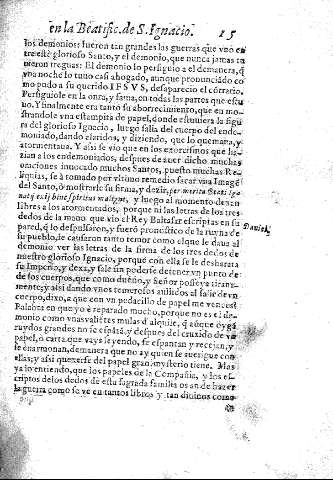 en la Beatific. de S. Ignacio. 15
los demonios: fueron tan grandes las guerras que vuo en
tre este glorioso Santo, y el demonio, que nunca jamas tu
uieron treguas: El demonio lo persiguio a el demanera, q̃
vna noche lo tuuo casi ahogado, aunque pronunciado co
mo pudo a su querido IESVS, desaparecio el cótrario.
Persiguiole en la onra, y fama, en todas las partes que estu
uo. Y finalmente era tanto su aborrecimiento, que en mo-
strandole vna estampita de papel, donde estuuiera la figu
ra del glorioso Ignacio, luego salia del cuerpo del ende-
moniado, dando alaridos, y diziendo, que lo quemaua, y
atormentaua. Y assi se vio que en los exorcismos que ha-
zian a los endemoniados, despues de auer dicho muchas
oraciones inuocado muchos Santos, puesto muchas Re-
liquias, se à tomado por vltimo remedio sacar vna Imagẽ
del Santo, ò mostrarle su firma, y dezir, per merita Beati Igna
tij exi hinc spiritus maligne, y luego al momento dexan
libres a los atormentados, porque ni las letras de los tres
dedos de la mano que vio el Rey Baltasar escriptas en su
Daniel.
pared, q̃ lo despulsaron, y fueró pronostico de la ruyna d̃
su pueblo, le causaron tanto temor como el que le daua al
demonio ver las letras de la firma de los tres dedos de
nuestro glorioso Ignacio, porque con ella se le desbarata
su Imperio, y dexa, y sale sin poderse detener vn punto de
de los cuerpos, que como dueño, y Señor posseya tirana-
mente; y assi dando vnos temerosos aullidos al salir de vn
cuerpo, dixo, a que con vn pedacillo de papel me vences!
Palabra en que yo è reparado mucho, porque no es el de-
monio como vnas valiẽtes mulas d̃ alquile, q̃ aũque oygã
ruydos grandes no se espãtã, y despues del cruxido de vn
papel, ò carta que vays leyendo, se espantan y recejan, y
ellas; y assi quererse del papel gran misterio tiene. Mas
ya lo entiendo, que los papeles de la Compañia, y los es-
criptos de los dedos desta sagrada familia os an de hazer
la guerra como se ve en tantos libros y tan diuinos como